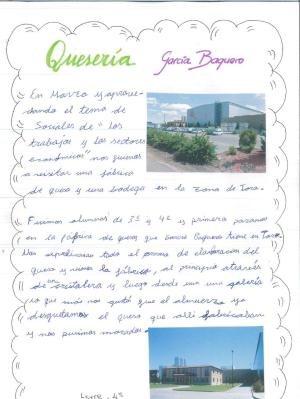 Quesería García Baquero
En Marzo y aprove-
chando el tema de
Sociales de "los
trabajos y los sectores
económicos" nos fuimos
a visitar una fábrica
de queso y una bodega en la zona de Toro.
Fuimos alumnos de 3º y 4º y primero pasamos
en la fábrica de quesos que García Baquero tiene en Toro.
Nos explicaron todo el proceso de elaboración del
queso y vimos la fábrica, al principio através
de una cristalera y luego desde una galería
lo que más nos gustó fue el almuerzo ya
degustamos el queso que allí fabricaban
y nos pusimos morados.
4º